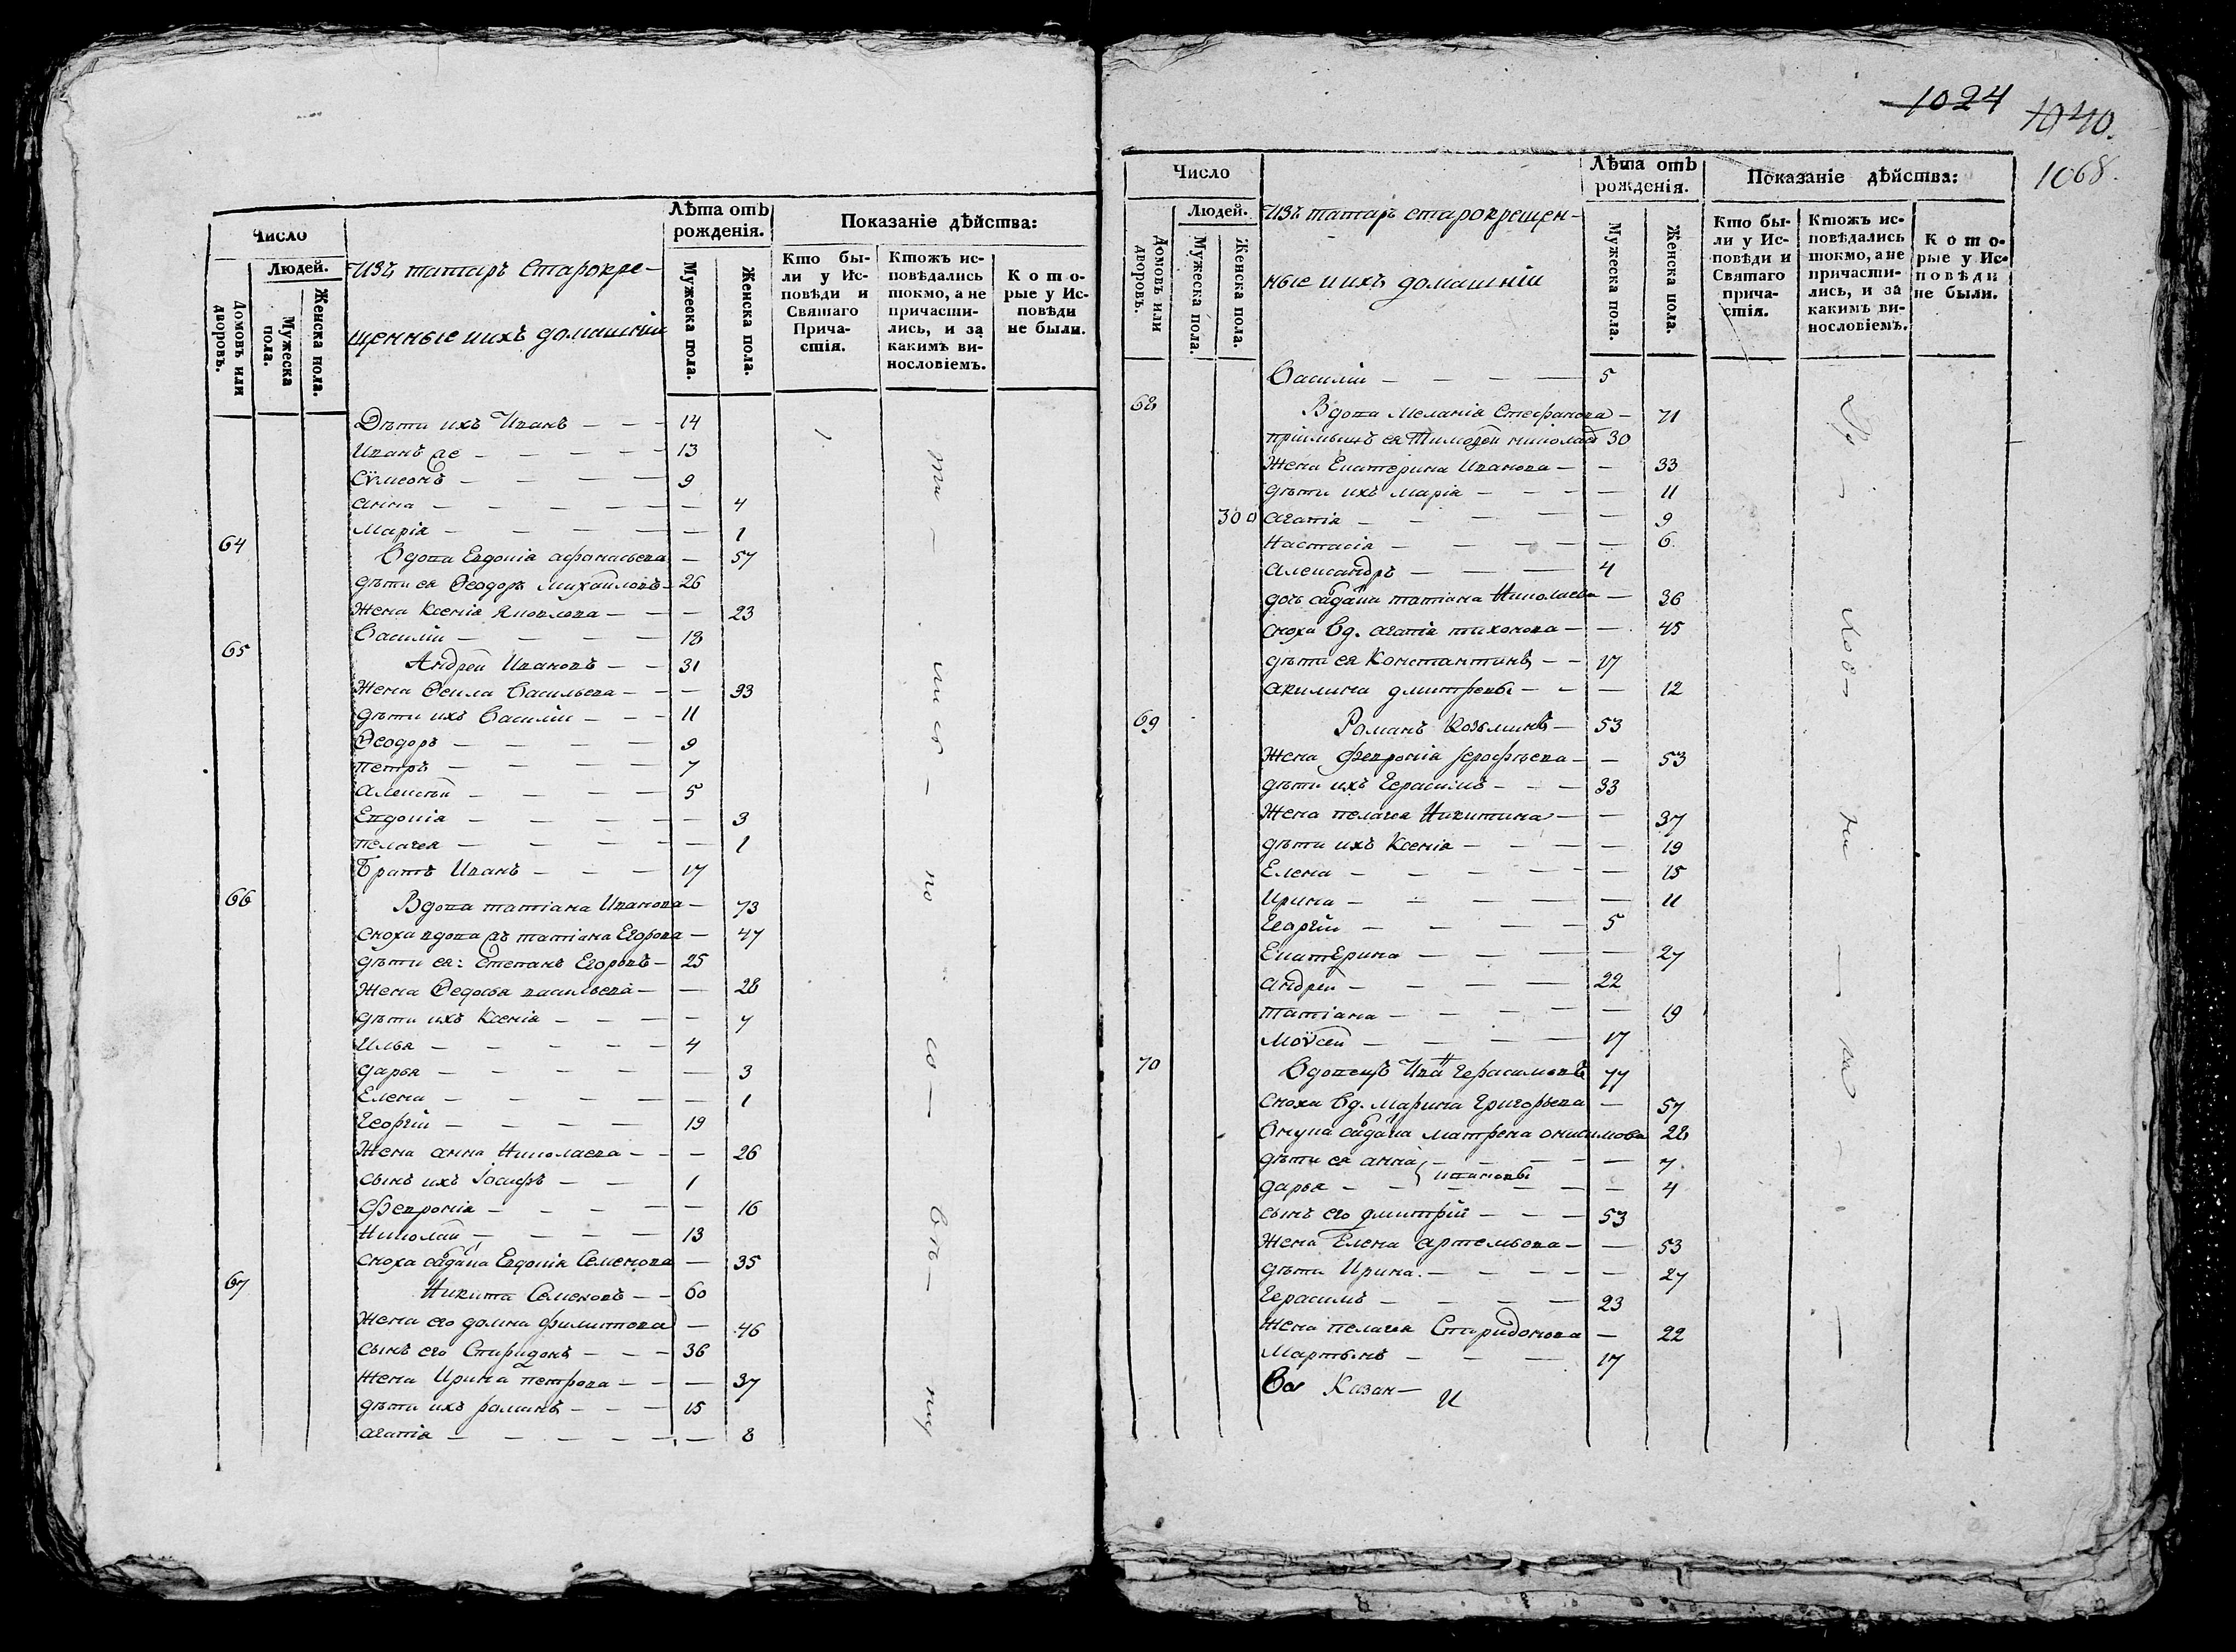 Число
Людей.
Домовъ или дворовъ.
Мужеска пола.
Женска пола.
Изъ татаръ старокре-
щенные и ихъ домашніи
Лѣта отъ рожденія.
Мужеска пола.
Женска пола.
Показаніе дѣйства:
Кто бы-
ли у Ис-
повѣди и
Святаго
Прича-
стія.
Ктожъ ис-
повѣдались
токмо, а не
причасти-
лись, и за
какимъ ви-
нословіемъ.
Кото-
рые у Ис-
повѣди
не были.
Дѣти ихъ Иванъ — — — 14
Иванъ же — — — 13
Сѵмеонъ — — — 9
Анна — — — 4
Марія — — — 1
64 Вдова Евдокія Афонасьева — 57
дѣти ея Ѳеодоръ Михайловъ — 26
Жена Ксенія Яковлева — — 23
Василій — — — 18
65 Андрей Ивановъ — — 31
Жена Ѳекла Васильева — — 33
дѣти ихъ Василій — — 11
Ѳеодоръ — — — 9
Петръ — — — 7
Алексѣй — — — 5
Евдокія — — — 3
Пелагея — — — 1
Братъ Иванъ — — — 17
66 Вдова Татіана Иванова — 73
Сноха вдова жъ Татіана Егорова — 47
дѣти ея: Степанъ Егоровъ — 25
Жена Ѳедосья Васильева — — 28
дѣти ихъ Ксенія — — — 7
Илья — — — 4
Дарья — — — 3
Елена — — — 1
Георгій — — — 19
Жена Анна Николаева — — 26
Сынъ ихъ Іосифъ — — 1
Февронія — — — 16
Николай — — — 13
Сноха салдатка Евдокія Семенова — 35
67 Никита Семеновъ — — 60
Жена его Домна Филиппова — 46
Сынъ его Спиридонъ — — 36
Жена Ирина Петрова — — 37
дѣти ихъ Романъ — — 15
Агапія — — — 8
1024
1040.
1068.
Число
Людей.
Домовъ или дворовъ.
Мужеска пола.
Женска пола.
Изъ татаръ старокрещен-
ные и ихъ домашніи
Лѣта отъ
рожденія.
Мужеска пола.
Женска пола.
Показаніе дѣйства:
Кто бы-
ли у Ис-
повѣди и
Святаго
прича-
стія.
Ктожъ ис-
повѣдались
токмо, а не
причасти-
лись, и за
какимъ ви-
нословіемъ.
Кото-
рые у Ис-
повѣди
не были.
Василій — — — 5
68 Вдова Меланія Стефанова — 71
пріимышъ ея Тимофей Николаевъ 30
Жена Екатерина Иванова — — 33
дѣти ихъ Марія — — — 11
300 Агапія — — — 9
Настасія — — — 6
Александръ — — — 4
дочь салдатка Татіана Николаева — 36
Сноха вд. Агапія Тихонова — — 45
дѣти ея Константинъ — — 17
Акилина Дмитревы — — 12
69 Романъ Козьминъ — 53
Жена Февронія Ерофѣева — — 53
дѣти ихъ Герасимъ — — 33
Жена Пелагея Никитина — — 37
дѣти ихъ Ксенія — — — 19
Елена — — — 15
Ирина — — — 11
Георгій — — — 5
Екатерина — — — 27
Андрей — — — 22
Татіана — — — 19
Моѵсей — — — 17
70 Вдовецъ Иванъ Герасимовъ 77
Сноха вд. Марина Григорьева — 57
Внука салдатка Матрена Онисимова 28
дѣти ея Анна — — — 7
Ивановы
Дарья — — — 4
Сынъ его Дмитрій — — — 53
Жена Елена Артемьева — — 53
дѣти Ирина — — — 27
Герасимъ — — — 23
Жена Пелагея Спиридонова — 22
Мартынъ — — — 17